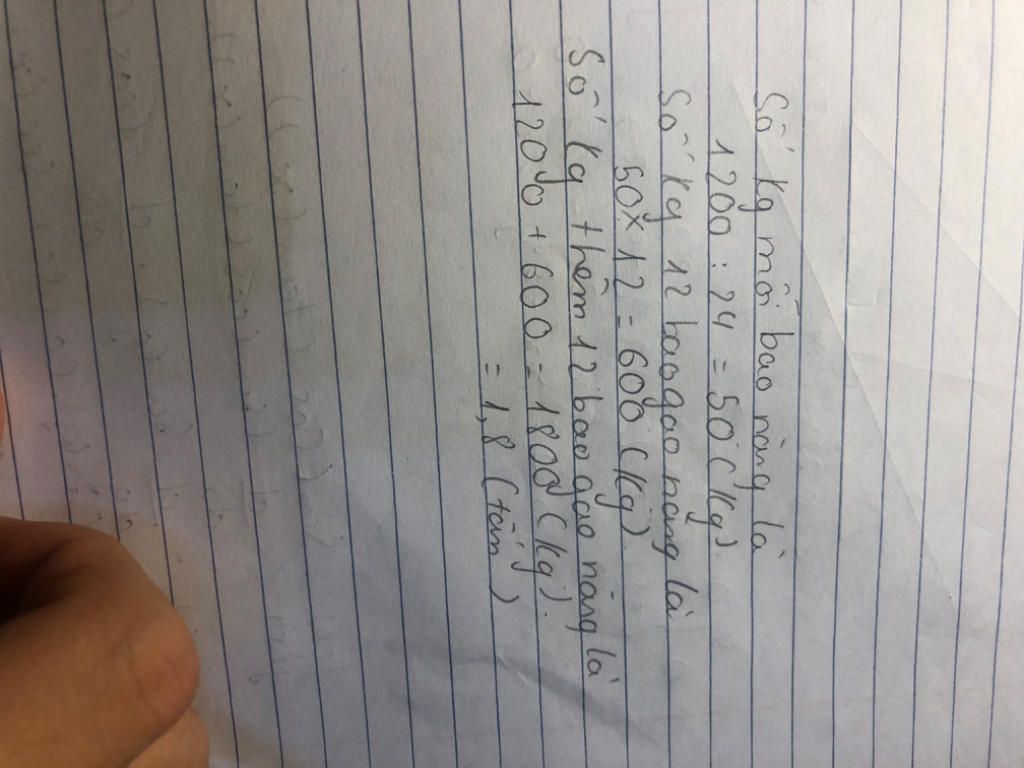 Số kg mỗi bao nặng là
1200 : 24 = 50 (kg).
Số kg 12 bao gạo nặng là
50 x 12 = 600 (kg).
Số kg thêm 12 bao gạo nặng là
1200 + 600 = 1800 (kg).
= 1,8 (tấn)